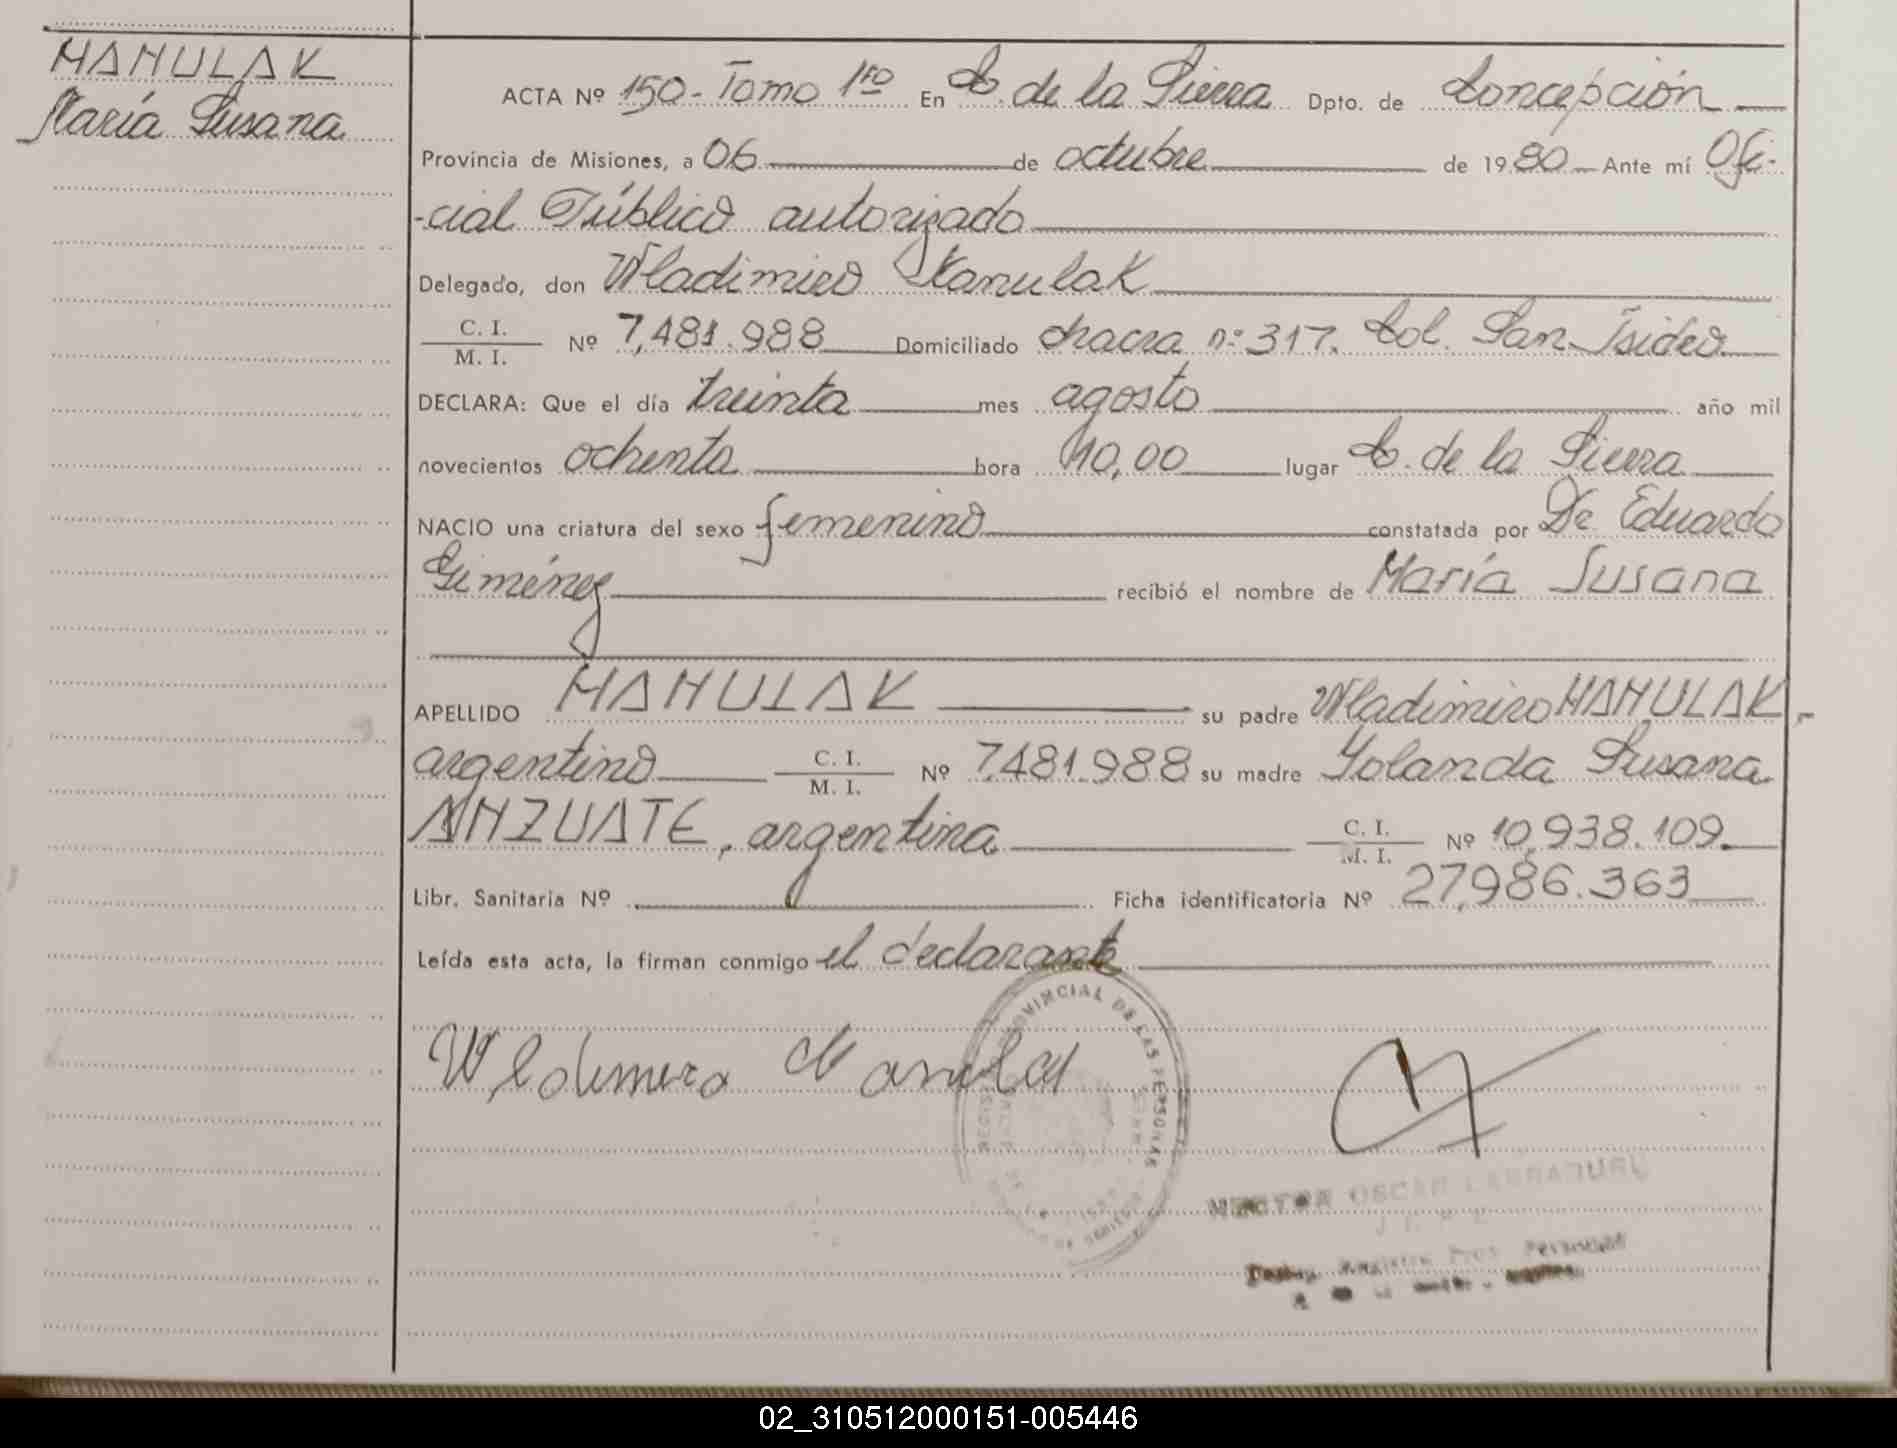 MANULAK
María Susana
ACTA Nº 150 - Tomo 1ro En C. de la Sierra Dpto. de Concepción
Provincia de Misiones, a 06 de octubre de 1980 Ante mí Ofi-
-cial Público autorizado
Delegado, don Wladimiro Manulak
C. I. / M. I. Nº 7,481.988 Domiciliado chacra nº 317. Col. San Isidro
DECLARA: Que el día treinta mes agosto año mil
novecientos ochenta hora 10,00 lugar C. de la Sierra
NACIO una criatura del sexo femenino constatada por Dr. Eduardo
Giménez recibió el nombre de María Susana
APELLIDO MANULAK su padre Wladimiro MANULAK,
argentino C. I. / M. I. Nº 7.481.988 su madre Yolanda Susana
ANZUATE, argentina C. I. / M. I. Nº 10,938.109.
Libr. Sanitaria Nº Ficha identificatoria Nº 27,986.363
Leída esta acta, la firman conmigo el declarante
Wldimero Manulak
PROVINCIAL DE LAS PERSONAS
OSCAR
02_310512000151-005446